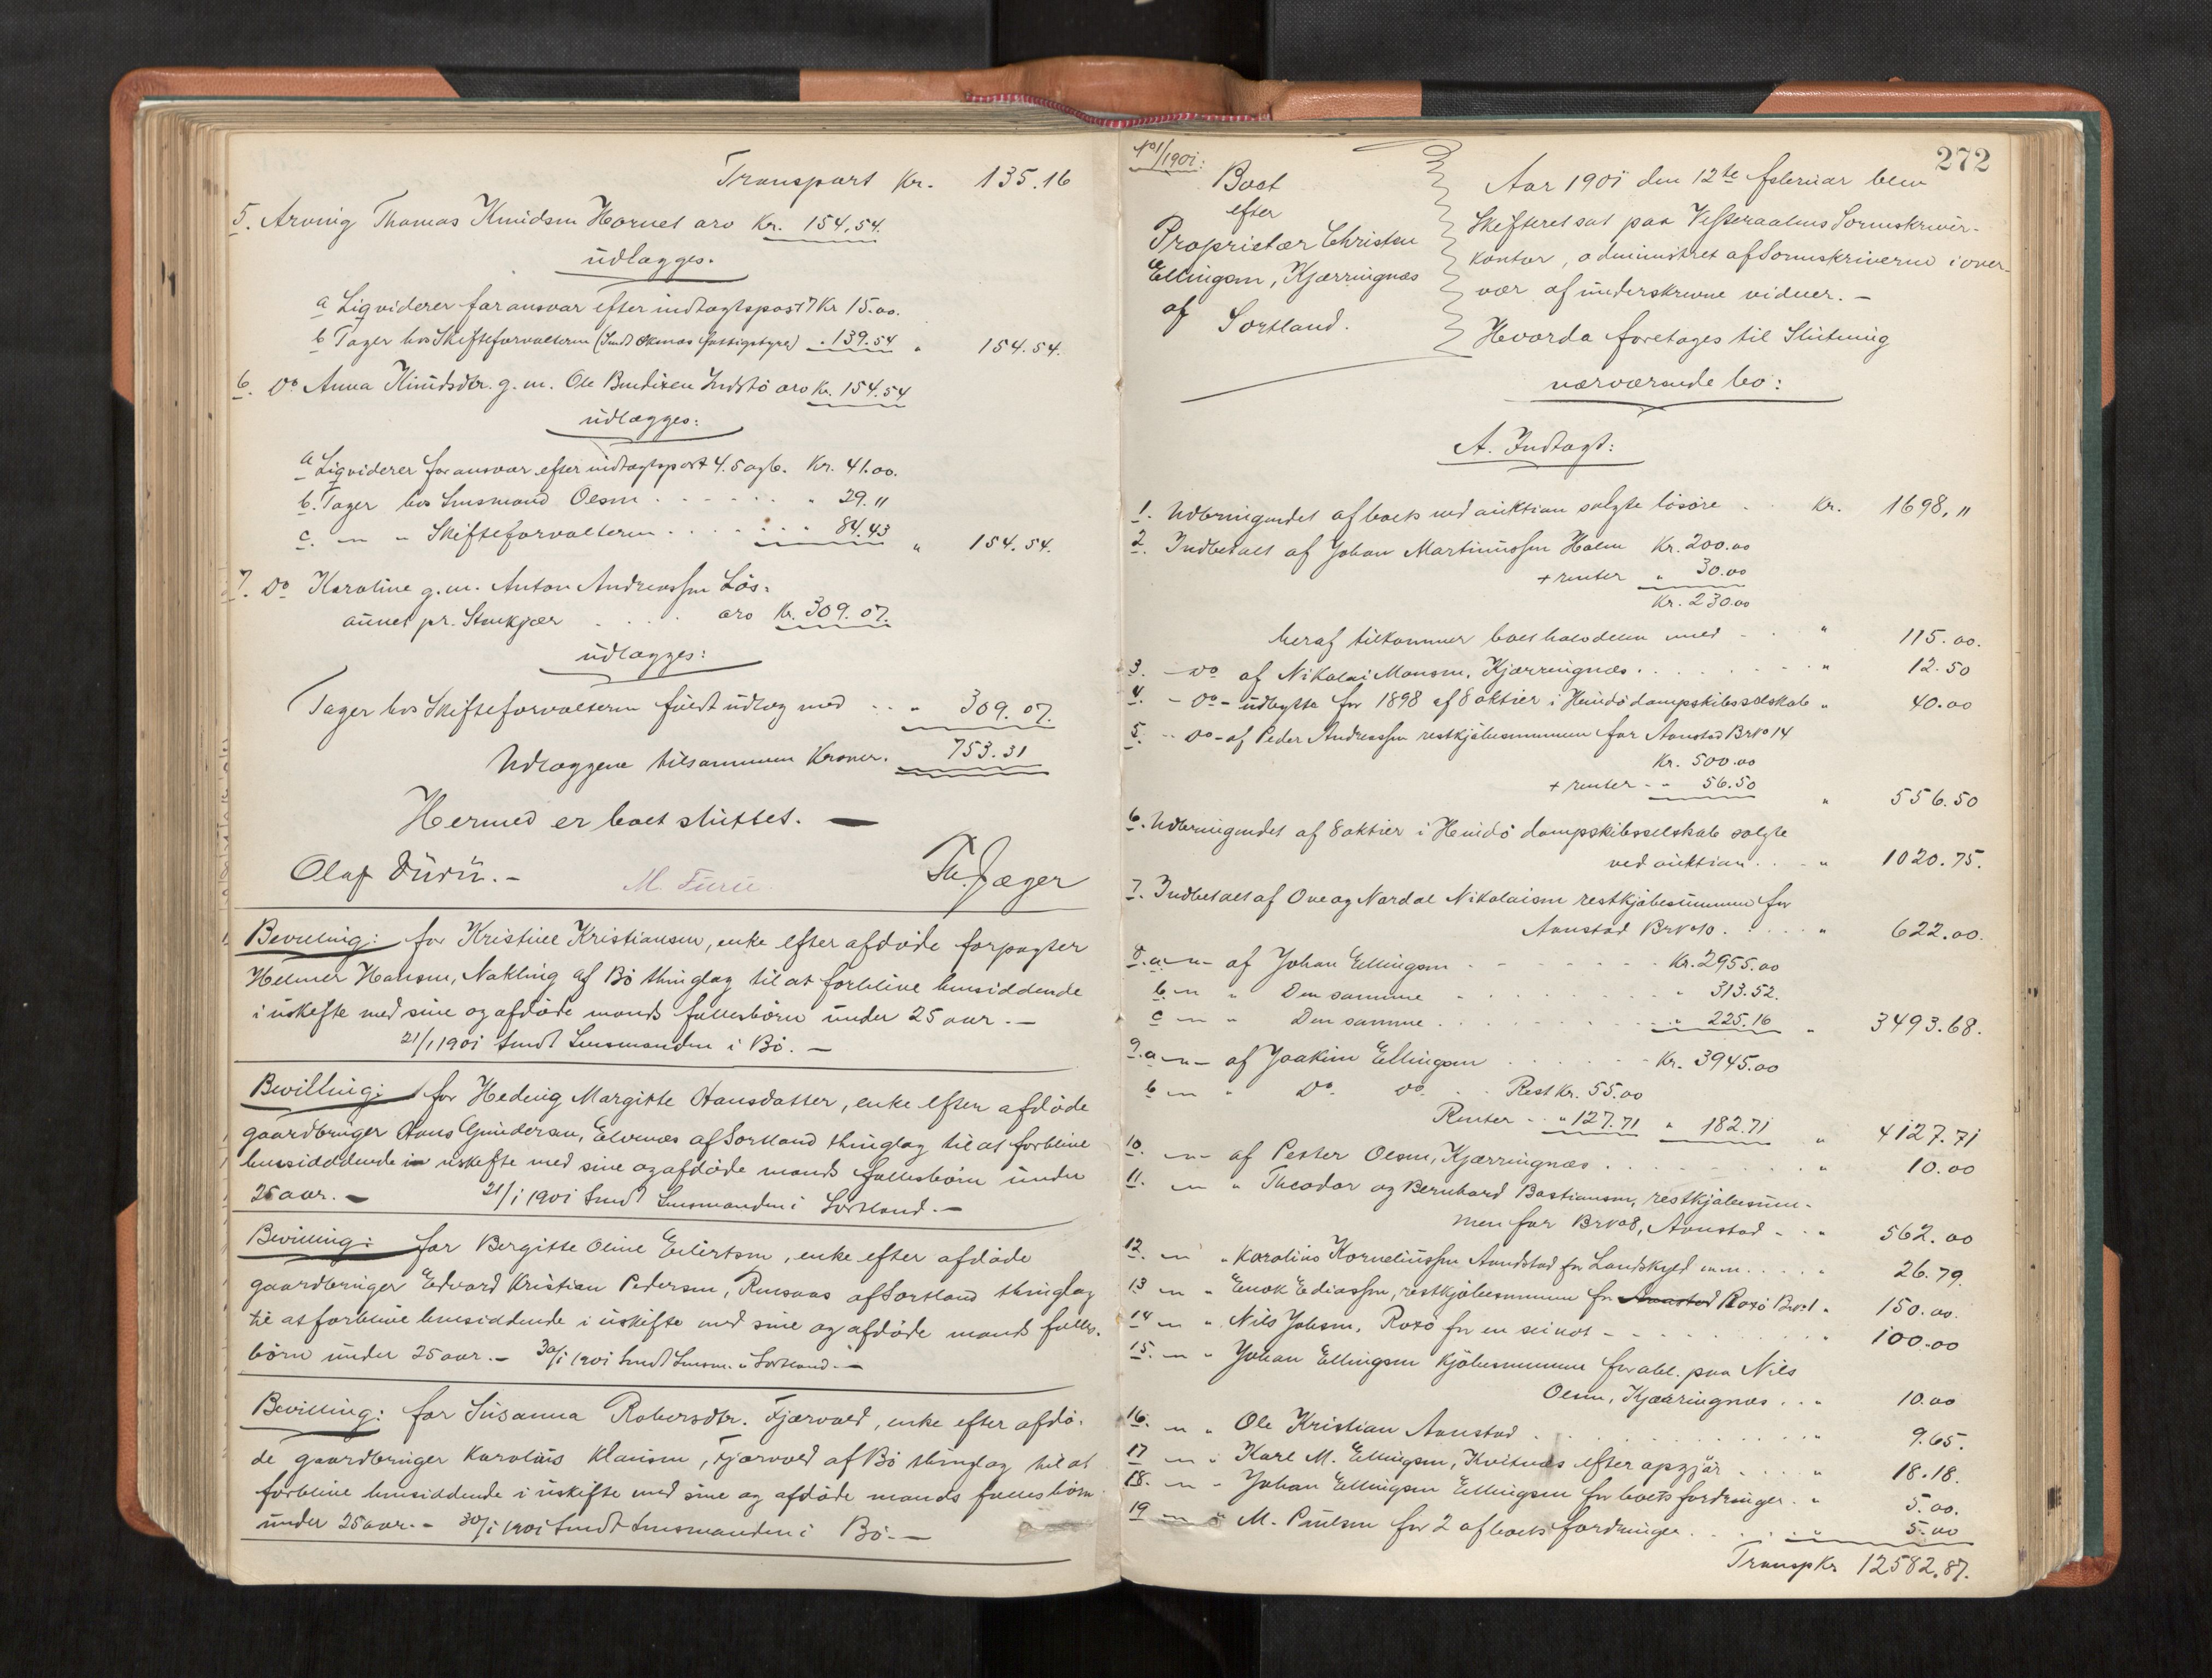 Transport Kr. 135.16
5. Arving Thomas Knudsen Hornet arv Kr. 154,54.
udlægges.
a Liqviderer for ansvar efter indtægtspost 7 Kr 15.00.
b Tager hos Skifteforvalteren (Sendt Øksnes fattigstyre) " 139.54 " 154.54.
6. Do Anna Knudsdtr. g. m. Ole Bendixen arv Kr. 154.54
udlægges:
a Liqviderer for ansvar efter indtægtspost 4. 5 og 6. Kr. 41.00.
b. Tager hos Lensmand Olsen . . . . . " 29. "
c. — " Skifteforvalteren . . . . . " 84.43 " 154.54.
7. Do Karoline g. m. Anton Andreassen Lös-
aunet pr. Stenkjær . . . . arv Kr. 309.07.
udlægges:
Tager hos Skifteforvalteren fuldt udlæg med . . " 309.07.
Udlæggene tilsammen Kroner. 753.31
Hermed er boet sluttet. —
Olaf Furu. - M. Furu. Th. Jæger
Bevilling: for Kristine Kristiansen, enke efter afdøde forpagter
Helmer Hansen, Nakling af Bö thinglag til at forblive hensiddende
i uskifte med sine og afdöde mands fællesbörn under 25 aar. —
21/1 1901 sendt Lensmanden i Bö. —
Bevilling: for Hedvig Margitte Hansdatter, enke efter afdöde
gaardbruger Hans Gundersen, Elvenæs af Sortland thinglag til at forblive
hensiddende i uskifte med sine og afdöde mands fællesbörn under
25 aar. — 21/1 1901 sendt Lensmanden i Sortland. —
Bevilling: for Bergitte Oline Eilertsen, enke efter afdöde
gaardbruger Edvard Kristian Pedersen, Rinsaas af Sortland thinglag
til at forblive hensiddende i uskifte med sine og afdöde mands fælles-
börn under 25 aar. — 30/1 1901 sendt Lensm. i Sortland. —
Bevilling: for Susanna Robersdtr. Fjærvold, enke efter afdö-
de gaardbruger Karolius Klausen, Fjærvold af Bö thinglag til at
forblive hensiddende i uskifte med sine og afdöde mands fællesbörn
under 25 aar. — 30/1 1901 sendt Lensmanden i Bö. —
272
No 1/1901:
Boet
efter
Proprietær Christen
Ellingsen, Kjærringnæs
af Sortland.
Aar 1901 den 12te februar blev
Skifteret sat paa Vesteraalens Sorenskriver-
kontor, administret af Sorenskriveren i over-
vær af underskrevne vidner. —
Hvorda foretoges til Slutning
nærværende bo:
A. Indtægt:
1. Udbringendet af boets ved auktion solgte lösöre . . Kr. 1698. "
2. Indbetalt af Johan Martinussen Holm Kr. 200.00
+ renter " 30.00
Kr. 230.00
heraf tilkommer boet halvdelen med . . " 115.00.
3. — Do af Nikolai Monsen, Kjærringnæs . . . . . " 12.50
4. — Do — udbytte for 1898 af 8 aktier i Hindö dampskibsselskab " 40.00
5. — Do — af Peder Andreassen restkjöbesummen for Aanstad Br No 14
Kr. 500.00
+ renter - " 56.50 " 556.50
6. Udbringendet af 8 aktier i Hindö dampskibsselskab solgte
ved auktion . . . " 1020.75.
7. Indbetalt af Ove og Nordal Nikolaisen restkjöbesummen for
Aanstad Br No 10. . . . . " 622.00.
8. a — " — af Johan Ellingsen . . . . . Kr. 2955.00
b — " " Den samme . . . . . " 313.52.
c — " " Den samme . . . . . " 225.16 " 3493.68.
9. a — " — af Joakim Ellingsen . . . . . Kr. 3945.00
b — " " Do Do . . Rest Kr. 55.00
Renter - " 127.71 " 182.71 " 4127.71
10. — " — af Petter Olsen, Kjærringnæs . . . . . " 10.00
11. — " " Theodor og Bernhard Bastiansen, restkjöbesum-
men for Br No 8, Aanstad - . . " 562.00
12. — " " Karolius Korneliussen Aandstad for Landskyld m.m. . . . " 26.79.
13 — " " Enok Ediassen, restkjöbesummen for Aanstad Roxö Br No 1 " 150.00.
14 — " " Nils Johsen, Roxö for en seinot - . . . " 100.00
15. — " " Johan Ellingsen kjöbesummene for obl. paa Nils
Olsen, Kjærringnæs . . " 10.00
16. — " " Ole Kristian Aanstad . . . . . " 9.65.
17 — " " Karl M. Ellingsen, Kvitnæs efter opgjör . . . . " 18.18.
18. — " - Johan Ellingsen Ellingsen for boets fordringer . " 5.00.
19 — " " M. Paulsen for 2 af boets fordringer . . . . " 5.00
Transp Kr. 12582.87.